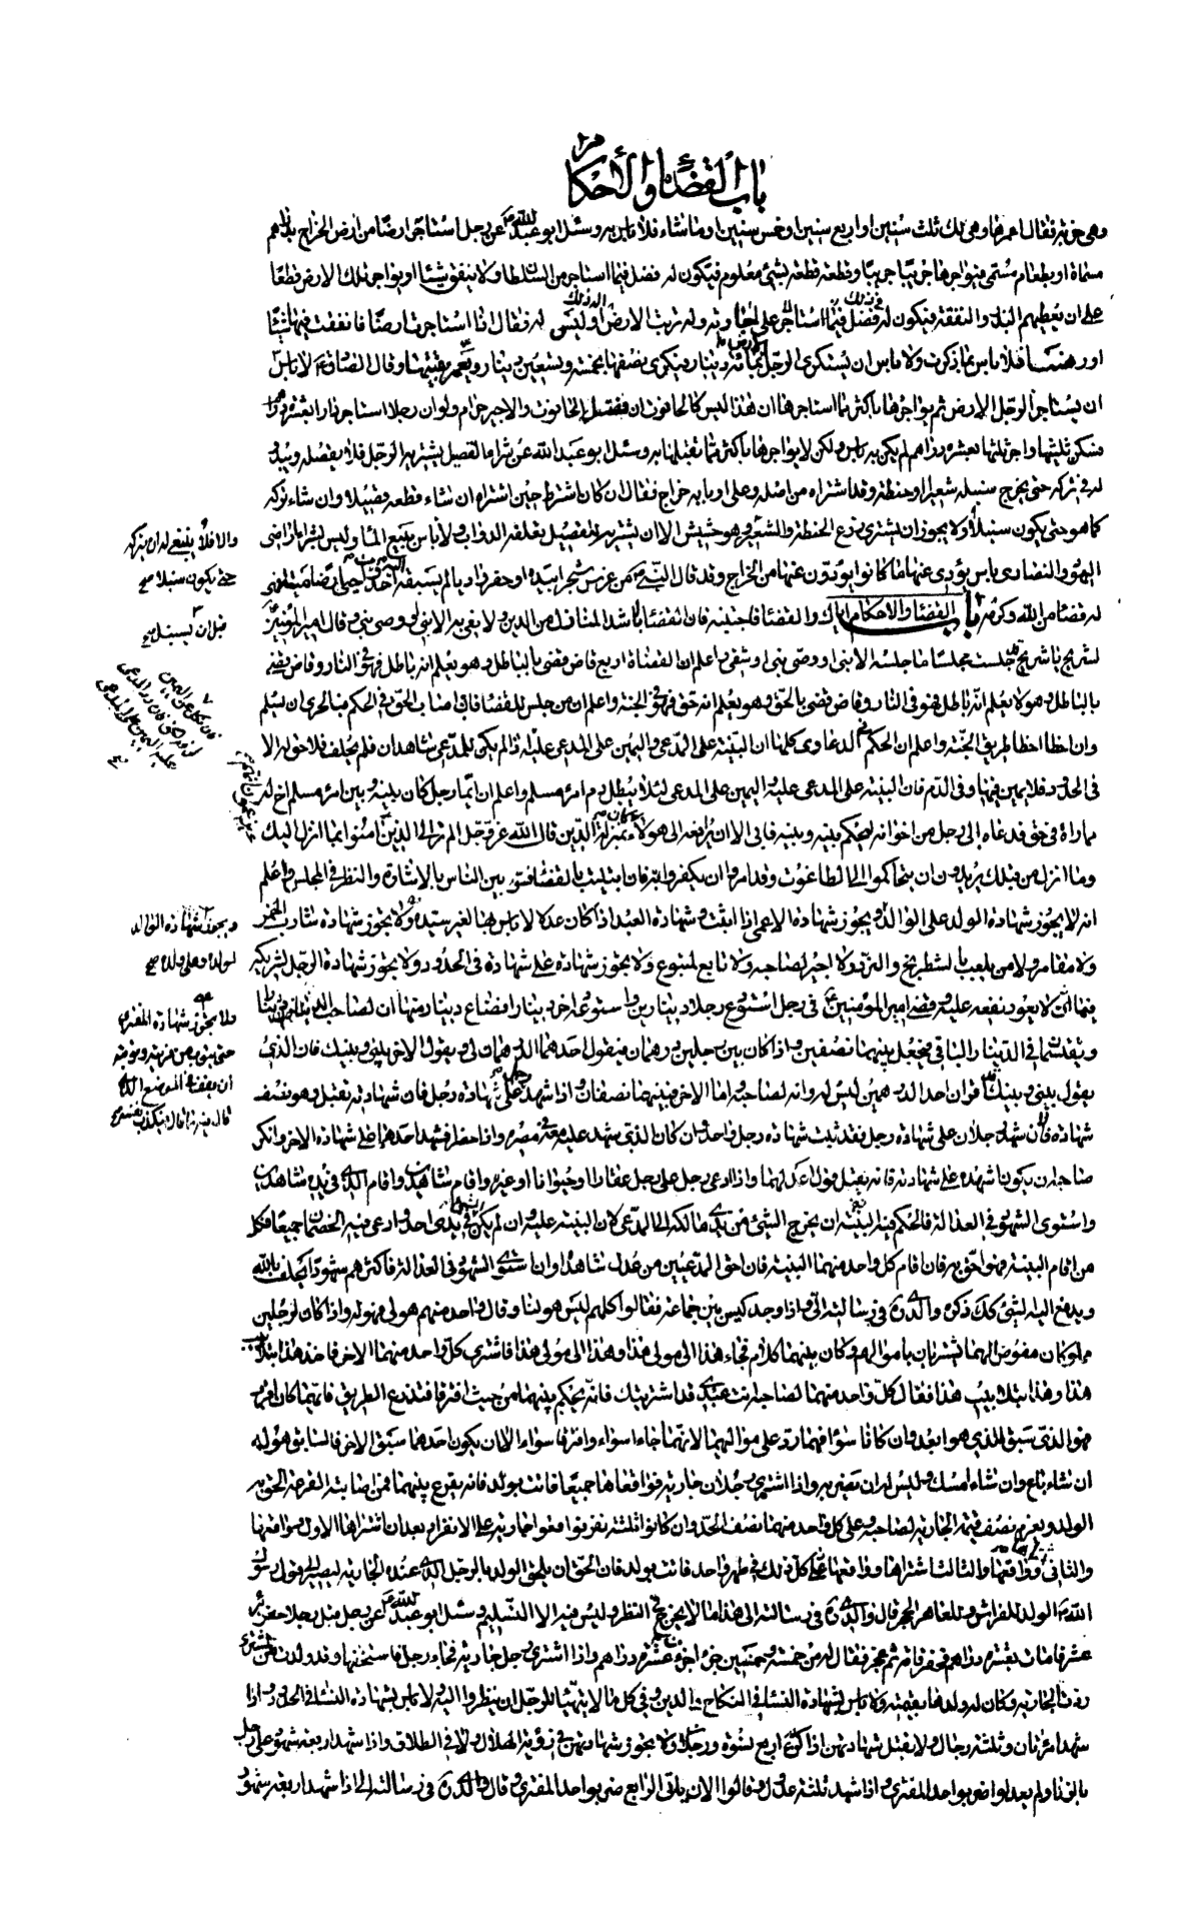 باب القضاء والأحكام
وهي خربة فقال اعمرها وهي لك ثلث سنين او اربع سنين او خمس سنين او ما شاء فلا باس به وسئل ابو عبد الله عن رجل استاجر ارضا من ارض الخراج بدراهم
مسماة او بطعام مسمى فيؤاجرها جريبا جريبا وقطعة قطعة بشئ معلوم فيكون له فضل فيما استاجر من السلطان ولا ينفق شيئا او يؤاجر تلك الارض قطعا
على ان يعطيهم البذر والنفقة فيكون له في ذلك فضل على اجارته وله تربة الارض او ليست له فقال اذا استاجرت ارضا فانفقت فيها شيئا
او رممت فلا باس بما ذكرت ولا باس ان يستكري الرجل الارض بمائة دينار فيكري نصفها بخمسة وتسعين دينارا ويعمر بقيتها وقال الصادق لا باس
ان يستاجر الرجل الارض ثم يؤاجرها باكثر مما استاجرها ان هذا ليس كالحانوت ان فضل الحانوت والاجير حرام ولو ان رجلا استاجر دارا بعشرة دراهم
فسكن ثلثيها واجر ثلثها بعشرة دراهم لم يكن به باس ولكن لا يؤاجرها باكثر مما تقبلها به وسئل ابو عبد الله عن شراء القصيل يشتريه الرجل فلا يفصله ويبدو
له في تركه حتى يخرج سنبله شعيرا او حنطة وقد اشتراه من اصله وعلى اربابه خراج فقال ان كان اشترط حين اشتراه ان شاء قطعه قصيلا وان شاء تركه
كما هو حتى يكون سنبلا ولا يجوز ان يشتري زرع الحنطة والشعير وهو حشيش الا ان يشتريه للقصيل يعلفه الدواب ولا باس ببيع الماء وليس بشراء اراضي
اليهود والنصارى باس يؤدي عنها ما كانوا يؤدون عنها من الخراج وقد قال النبي من غرس شجرا بديا او حفر واديا لم يسبقه اليه احد او احيى ارضا ميتة فهي
له قضاء من الله ورسوله باب القضاء والاحكام اياك والقضاء فاجتنبه فان القضاء اشد المنازل من الدين ولا يفي به الا نبي او وصي نبي وقال امير المؤمنين
لشريح يا شريح قد جلست مجلسا ما جلسه الا نبي او وصي نبي او شقي واعلم ان القضاة اربعة قاض قضى بالباطل وهو يعلم انه باطل فهو في النار وقاض قضى
بالباطل وهو لا يعلم انه باطل فهو في النار وقاض قضى بالحق وهو يعلم انه حق فهو في الجنة واعلم ان من جلس للقضاء فان اصاب الحق في الحكم فبالحري ان يسلم
وان اخطا اخطا طريق الجنة واعلم ان الحكم في الدعاوى كلها ان البينة على المدعي واليمين على المدعى عليه اذا لم يكن للمدعي شاهدان فلم يحلف فلا حق له الا
في الحدود فلا يمين فيها وفي الدم فان البينة على المدعى عليه واليمين على المدعي لئلا يبطل دم امرء مسلم واعلم ان ايما رجل كان بينه وبين امرء مسلم اخ له
مماراة في حق فدعاه الى رجل من اخوانه ليحكم بينه وبينه فابى الا ان يرافعه الى هؤلاء كان بمنزلة الذين قال الله عز وجل الم تر الى الذين يزعمون انهم امنوا بما انزل اليك
وما انزل من قبلك يريدون ان يتحاكموا الى الطاغوت وقد امروا ان يكفروا به فان ابتليت بالقضاء فسو بين الناس بالاشارة والنظر في المجلس واعلم
انه لا يجوز شهادة الولد على الوالد ويجوز شهادة الاعمى اذا اثبت وشهادة العبد اذا كان عدلا لا باس بها لغير سيده ولا يجوز شهادة شارب الخمر
ولا مقامر ولا من يلعب بالشطرنج والنرد ولا اجير لصاحبه ولا تابع لمتبوع ولا يجوز شهادة على شهادة في الحدود ولا يجوز شهادة الرجل لشريكه
فيما يعود نفعه عليه وقضى امير المؤمنين في رجل استودع رجلا دينارين واستودعه اخر دينارا فضاع دينار منها ان لصاحب الدينارين دينارا
ويقتسمان الدينار الباقي فيجعل بينهما نصفين واذا كان بين رجلين درهمان فيقول احدهما الدرهمان لي ويقول الاخر بيني وبينك فان الذي
يقول بيني وبينك قد اقر ان احد الدرهمين ليس له وانه لصاحبه اما الاخر فبينهما نصفان واذا شهد رجل على شهادة رجل فان شهادته تقبل وهو نصف
شهادة فان شهد رجلان على شهادة رجل فقد ثبت شهادة رجل واحد وان كان الذي شهد عليه معه في مصره واذا حضرا فشهد احدهما على شهادة الاخر وانكر
صاحبه ان يكون اشهده على شهادته فانه يقبل قول اعدلهما واذا ادعى رجل على رجل عقارا او حيوانا او غيره واقام شاهدين واقام الذي في يده شاهدين
واستوى الشهود في العدالة فالحكم فيه ان يخرج الشئ من يدي مالكه الى المدعي لان البينة عليه وان لم يكن في يدي احد وادعى فيه الخصمان جميعا فكل
من اقام البينة فهو احق به فان اقام كل واحد منهما البينة فان احق المدعيين من عدل شاهداه وان استوى الشهود في العدالة فاكثرهم شهودا يحلف بالله
ويدفع اليه الشئ كذلك ذكره والدي في رسالته الي واذا وجد كيس بين جماعة فقالوا كلهم ليس هو لنا وقال واحد منهم هو لي فهو له واذا كان لرجلين
مملوكان مفوض اليهما يشتريان باموالهم وكان بينهما كلام فجاء هذا الى مولى هذا وهذا الى مولى هذا فاشترى كل واحد منهما الاخر فاخذ هذا بتلابيب
هذا وهذا بتلابيب هذا فقال كل واحد منهما لصاحبه انت عبدي قد اشتريتك فانه يحكم بينهما من حيث افترقا فتذرع الطريق فايهما كان اقرب
فهو الذي سبق الذي هو ابعد وان كانا سواء فهما رد على مواليهما لانهما جاءا سواء وافترقا سواء الا ان يكون احدهما سبق الاخر فالسابق هو له
ان شاء باع وان شاء امسك وليس له ان يضر به واذا اشترى رجلان جارية فواقعاها جميعا فاتت بولد فانه يقرع بينهما فمن اصابته القرعة الحق به
الولد ويغرم نصف قيمة الجارية لصاحبه وعلى كل واحد منهما نصف الحد وان كانوا ثلثة نفر فواقعوا جارية على الانفراد بعد ان اشتراها الاول وواقعها
والثاني اشتراها وواقعها والثالث اشتراها وواقعها كل ذلك في طهر واحد فاتت بولد فان الحق ان يلحق الولد بالرجل الذي عنده الجارية ليصير الى قول رسول
الله الولد للفراش وللعاهر الحجر قال والدي في رسالته الي هذا ما لا يخرج في النظر وليس فيه الا التسليم وسئل ابو عبد الله عن رجل قبل رجلا حفر بئر
عشر قامات بعشرة دراهم فحفر قامة ثم عجز فقال له من خمسة وخمسين جزء من عشرة دراهم واذا اشترى رجل جارية فجاء رجل فاستحقها وقد ولدت من المشتري
ردت الجارية وكان له ولدها بقيمته ولا باس بشهادة النساء في النكاح والدين وفي كل ما لا يتهيا للرجل ان ينظروا اليه ولا باس بشهادة النساء في الحدود اذا
شهد امرءتان وثلثة رجال ولا يقبل شهادتهن اذا كن اربع نسوة ورجلان ولا يجوز شهادتهن في رؤية الهلال ولا في الطلاق واذا شهد اربعة شهود على رجل
بالزنا ولم يعدلوا ضربوا حد المفتري واذا شهد ثلثة عدول وقالوا الان ياتي الرابع ضربوا حد المفتري وقال والدي في رسالته الي اذا شهد اربعة شهود
والا فلا ينبغي له ان يتركه
حتى يكون سنبلا صح
قبل ان يسنبل صح
فان نكل عن اليمين
لزمه الحق فان رد المدعى
عليه اليمين على المدعي
ويجوز شهادة الوالد
لولده وعلى ولده صح
ولا يجوز شهادة المفتري
حتى يتوب من فريته وتوبته
ان يقف في الموضع الذي
قال فيه ما قال فيكذب نفسه